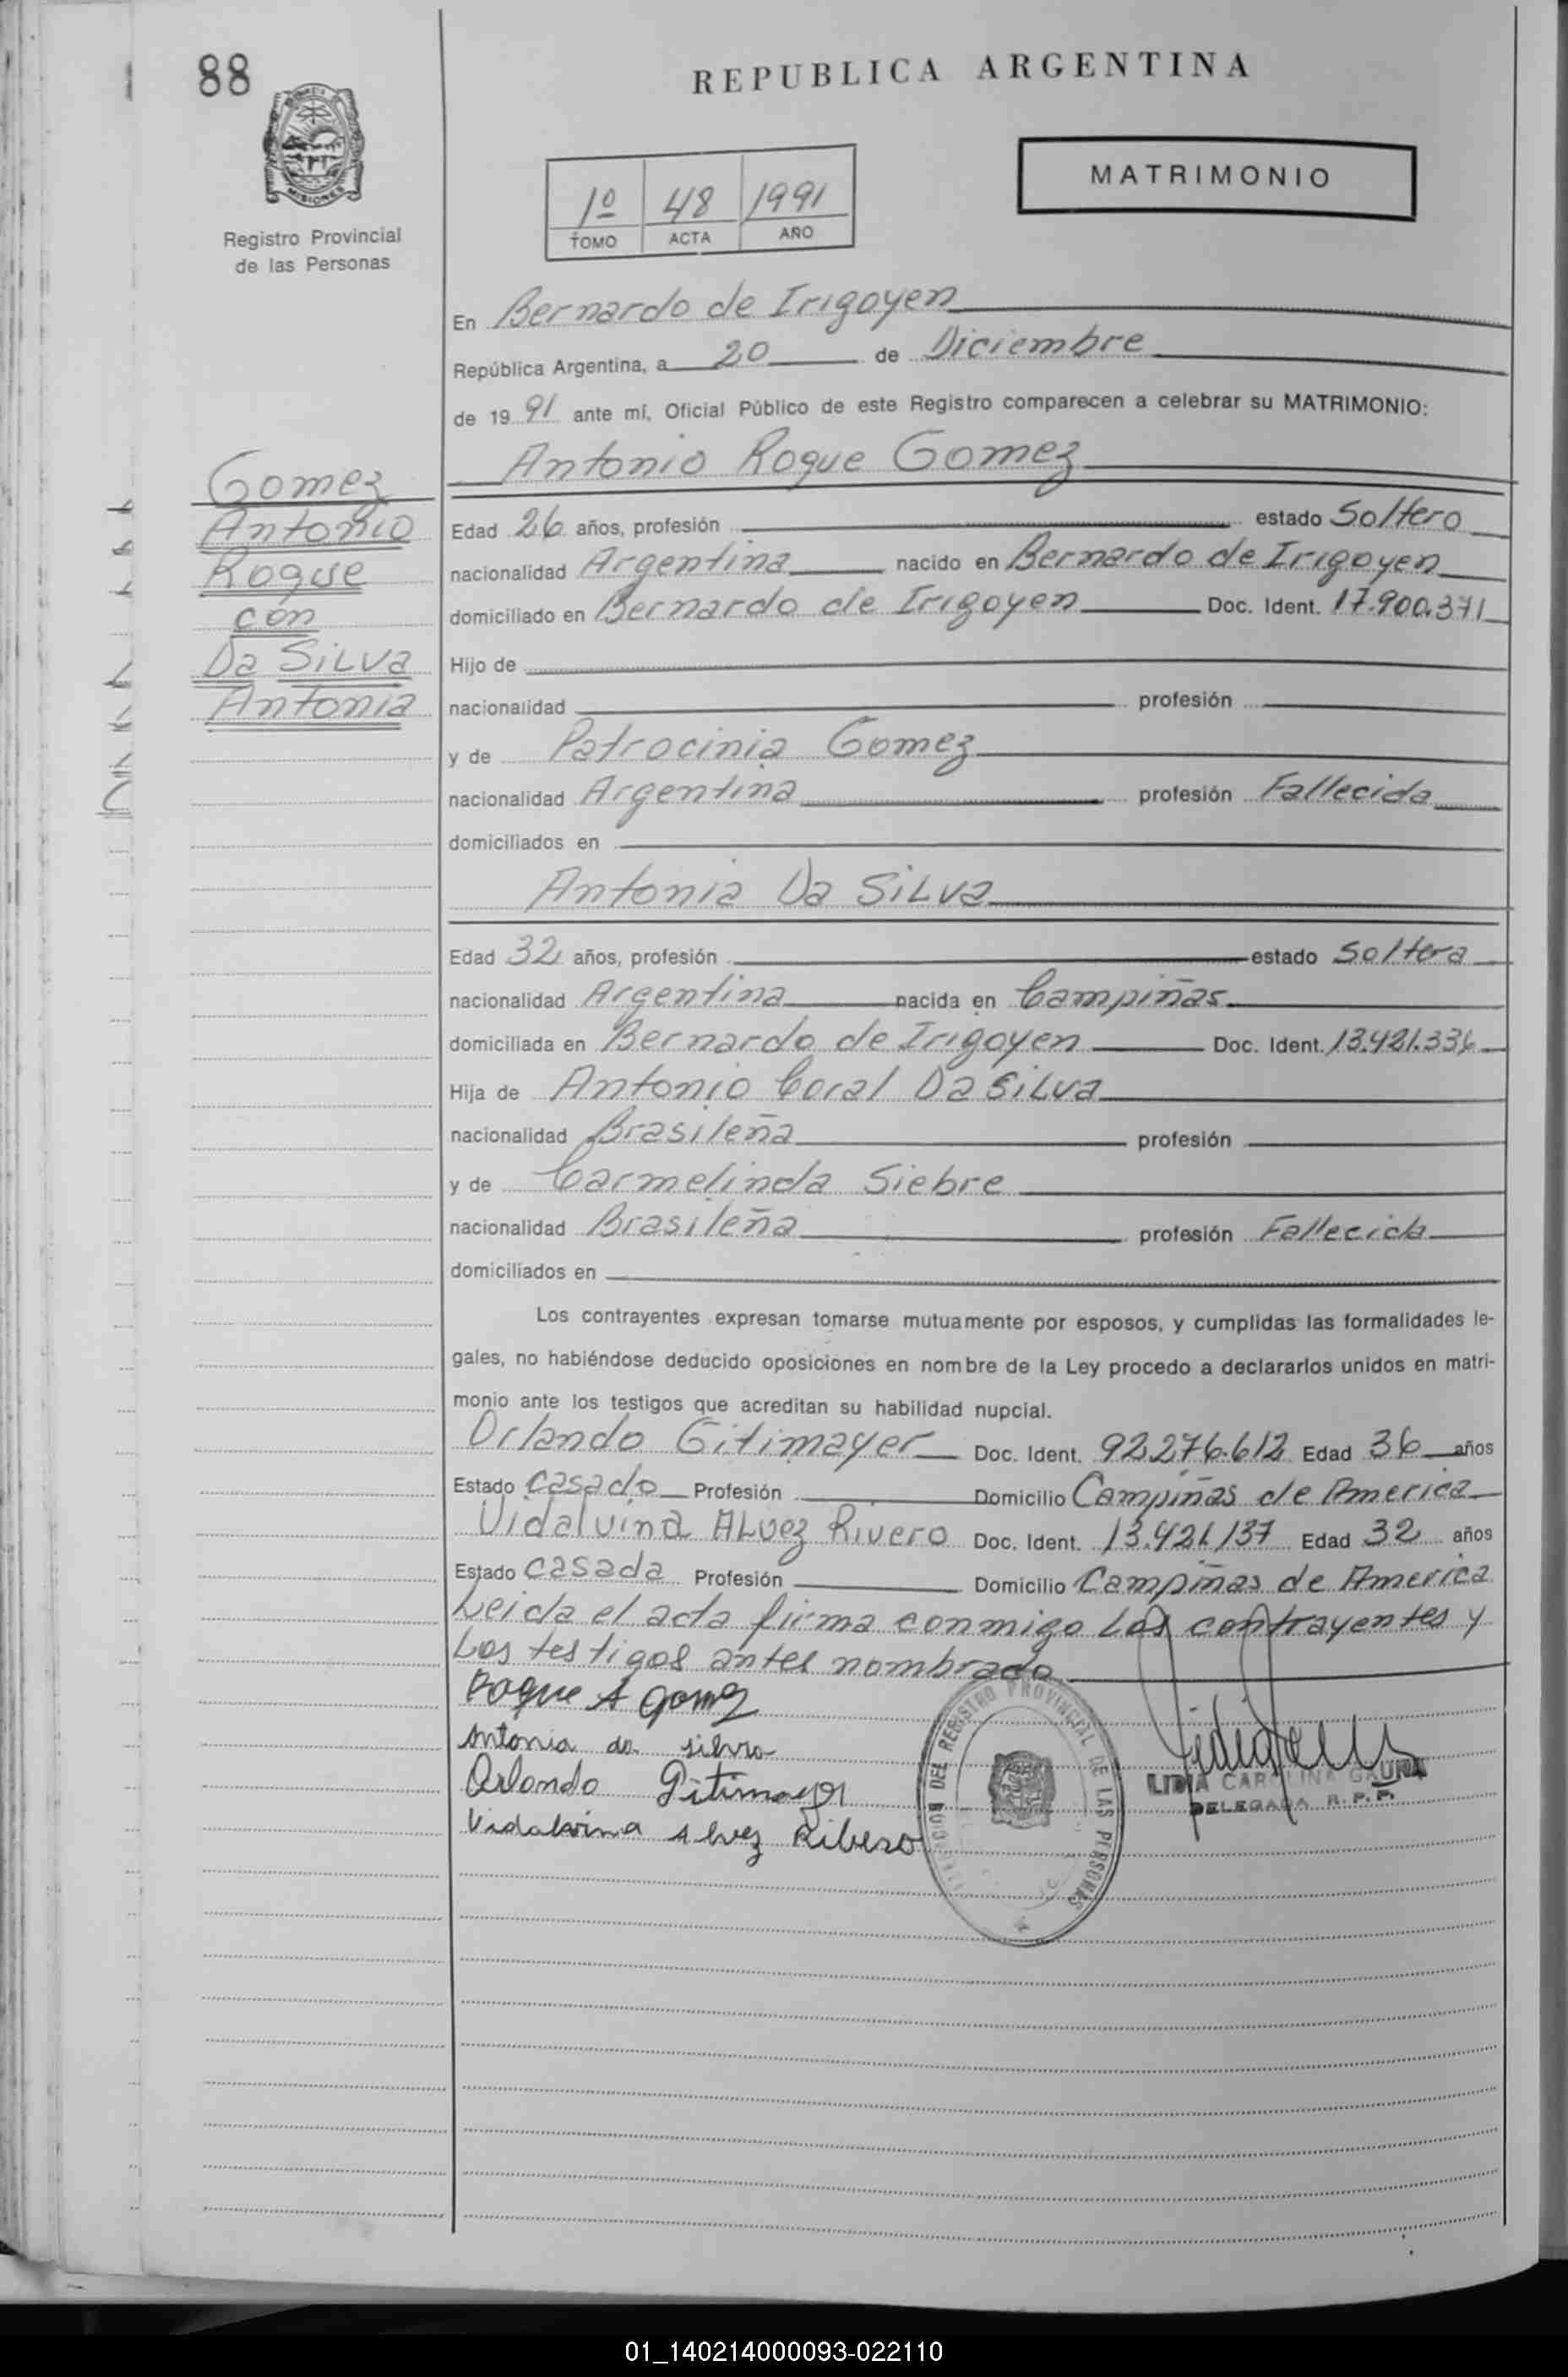 88
REPUBLICA ARGENTINA
MISIONES
Registro Provincial
de las Personas
1º 48 1991
TOMO ACTA AÑO
MATRIMONIO
En Bernardo de Irigoyen
República Argentina, a 20 de Diciembre
de 19 91 ante mí, Oficial Público de este Registro comparecen a celebrar su MATRIMONIO:
Antonio Roque Gomez
Gomez
Antonio
Roque
con
Da SiLva
Antonia
Edad 26 años, profesión estado Soltero
nacionalidad Argentina nacido en Bernardo de Irigoyen
domiciliado en Bernardo de Irigoyen Doc. Ident. 17.900.371
Hijo de
nacionalidad profesión
y de Patrocinia Gomez
nacionalidad Argentina profesión Fallecida
domiciliados en
Antonia Da SiLva
Edad 32 años, profesión estado Soltera
nacionalidad Argentina nacida en Campiñas
domiciliada en Bernardo de Irigoyen Doc. Ident. 13.421.336
Hija de Antonio Coral Da SiLva
nacionalidad Brasileña profesión
y de Carmelinda Siebre
nacionalidad Brasileña profesión Fallecida
domiciliados en
Los contrayentes expresan tomarse mutuamente por esposos, y cumplidas las formalidades le-
gales, no habiéndose deducido oposiciones en nombre de la Ley procedo a declararlos unidos en matri-
monio ante los testigos que acreditan su habilidad nupcial.
Orlando Gitimayer Doc. Ident. 92.276.612 Edad 36 años
Estado Casado Profesión Domicilio Campiñas de America
Vidalvina ALvez Rivero Doc. Ident. 13.421.137 Edad 32 años
Estado Casada Profesión Domicilio Campiñas de America
Leida el acta firma conmigo Los contrayentes y
Los testigos antes nombrado
Roque A Gomez
Antonia da silvia
Orlando Gitimayer
Vidalvina Alvez Ribero
DEL REGISTRO PROVINCIAL DE LAS PERSONAS
LIDIA CAROLINA GAUNA
DELEGADA R. P. P.
01_140214000093-022110